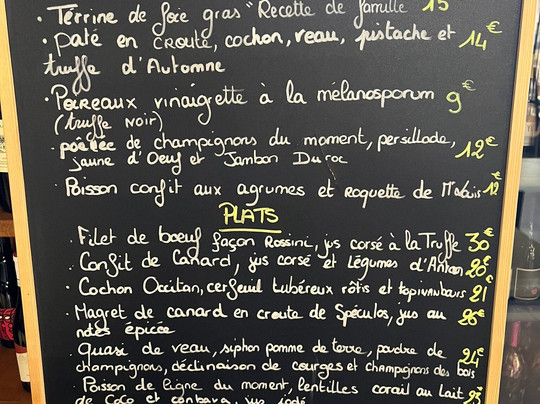 · Terrine de foie gras "Recette de famille 15
· Pâté en croute, cochon, veau, pistache et 14€
truffe d'Automne
· Poireaux vinaigrette à la mélanosporum 9€
(truffe noir)
· poêlée de champignons du moment, persillade, 12€
jaune d'Oeuf et Jambon Duroc
· Poisson confit aux agrumes et roquette de 12€
PLATS
· Filet de boeuf façon Rossini, jus corsé à la Truffe 30€
· Confit de Canard, jus corsé et légumes d'Antan 20€
· Cochon Occitan, cerfeuil tubéreux rôtis et topinambours 21€
· Magret de canard en croute de Spéculos, jus au 26€
notes épicée
· Quasi de veau, siphon pomme de terre, poudre de 24€
champignons, déclinaison de courges et champignons des bois
· Poisson de ligne du moment, lentilles corail au Lait 23€
de Coco et combava, jus iodé